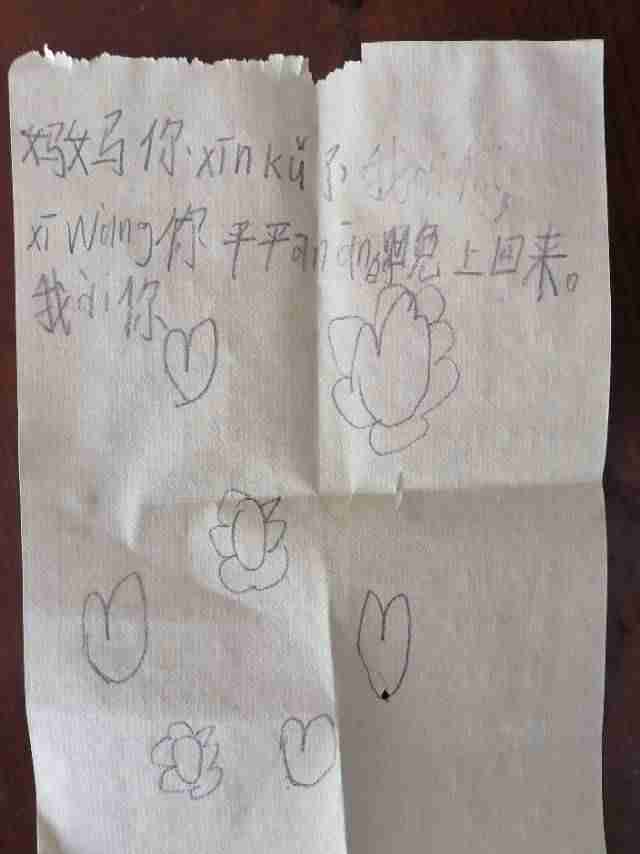 妈妈你xīnkǔ了,我
xīwàng你平平ānān晚上回来。
我ài你